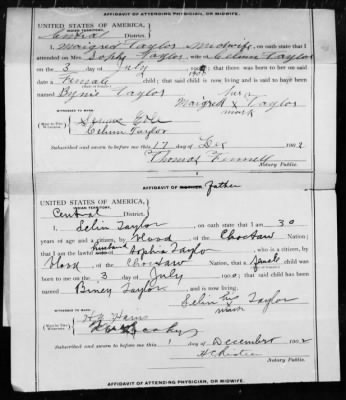 AFFIDAVIT OF ATTENDING PHYSICIAN, OR MIDWIFE.
UNITED STATES OF AMERICA,
INDIAN TERRITORY,
Central District.
I, Maigred Taylor, Midwife, on oath state that I
attended on Mrs. Sophy Taylor, wife of Edmun Taylor
on the 3 day of July, 1900, that there was born to her on said
date a Female child; that said child is now living and is said to have been
named Bynie Taylor
her
Maigred x Taylor
mark
WITNESSES TO MARK:
Edmun Taylor
Subscribed and sworn to before me this 17 day of Dec 1902
Thomas Fennell
Notary Public.
AFFIDAVIT OF MOTHER. father
UNITED STATES OF AMERICA,
INDIAN TERRITORY,
Central District.
I, Selin Taylor, on oath state that I am 30
years of age and a citizen, by blood, of the Choctaw Nation;
husband
that I am the lawful of Sophia Taylo, who is a citizen, by
blood of the Choctaw Nation, that a female child was
born to me on the 3 day of July, 1900; that said child has been
named Biney Taylor, and is now living.
Selin his x Taylor
mark
WITNESSES TO MARK:
Subscribed and sworn to before me this day of December 1902
Notary Public.
AFFIDAVIT OF ATTENDING PHYSICIAN, OR MIDWIFE.